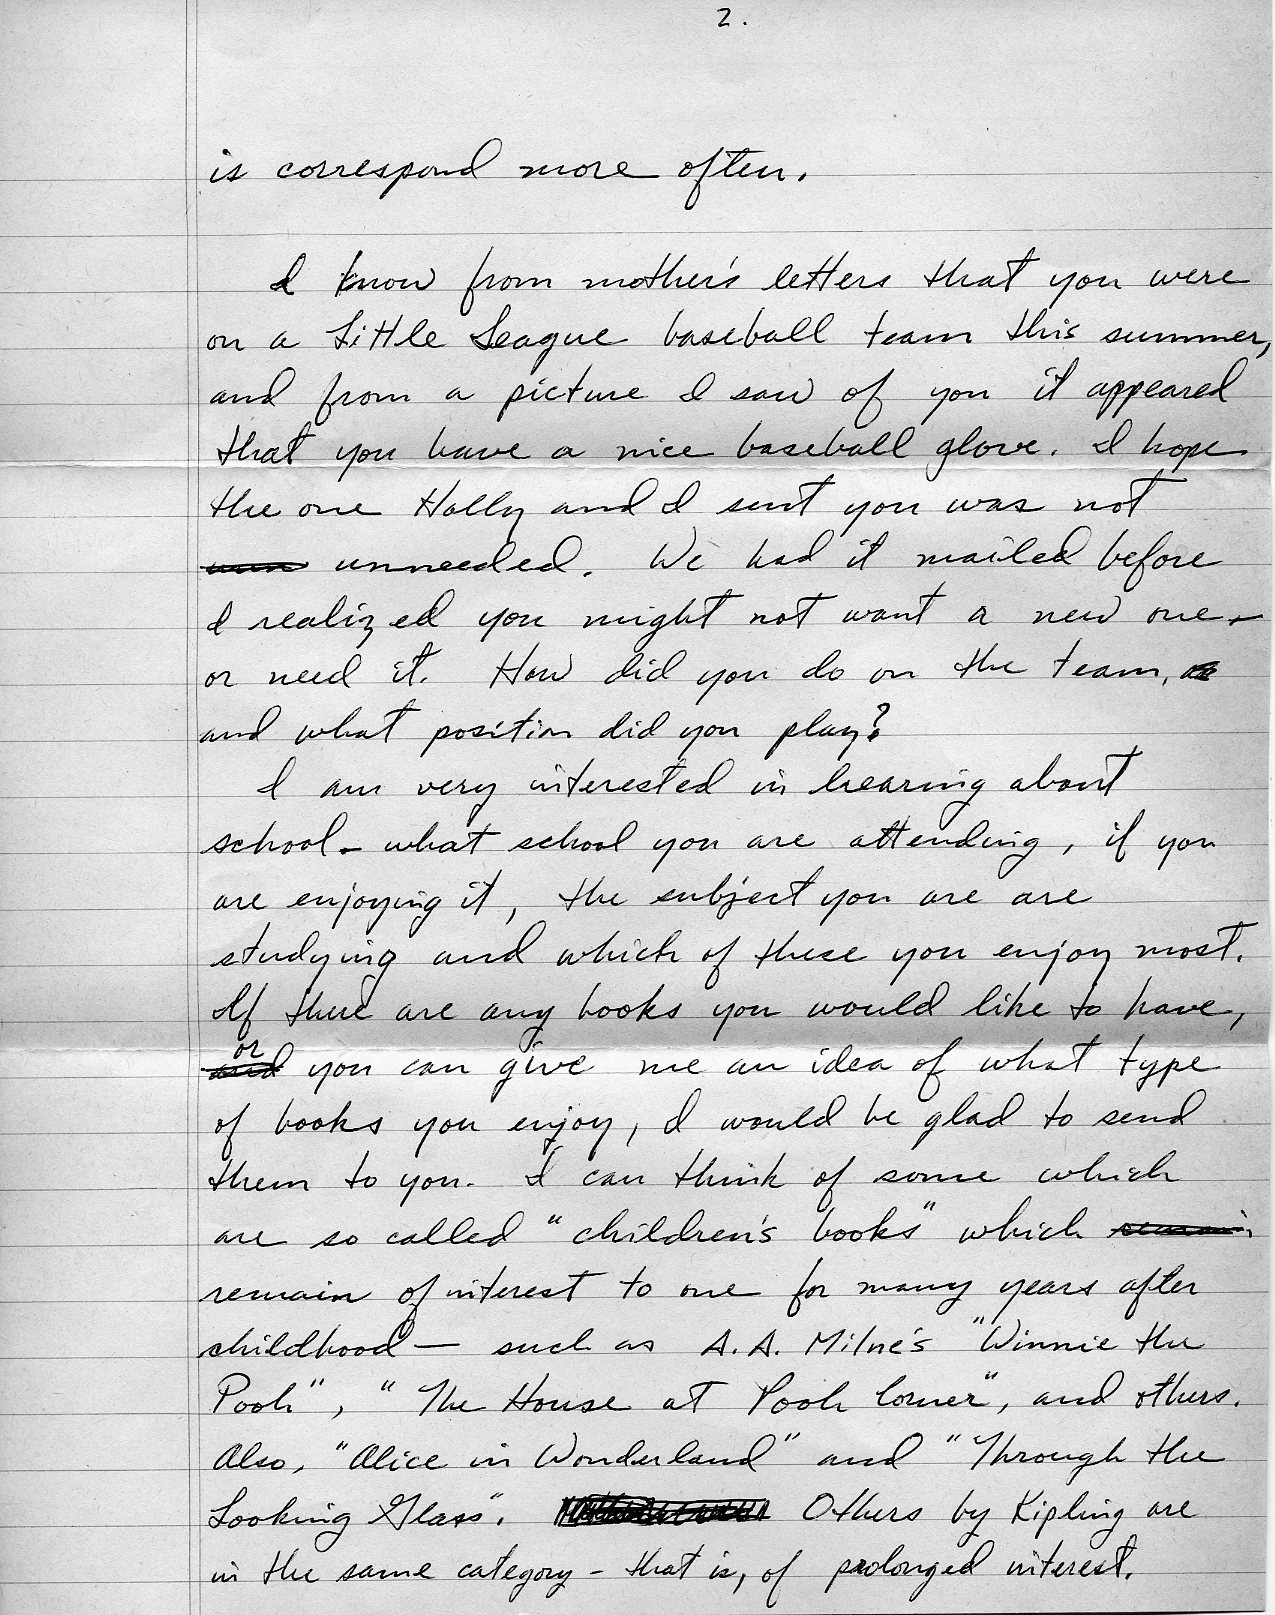 2.
is correspond more often.
I know from mother's letters that you were
on a Little League baseball team this summer,
and from a picture I saw of you it appeared
that you have a nice baseball glove. I hope
the one Holly and I sent you was not
unneeded. We had it mailed before
I realized you might not want a new one -
or need it. How did you do on the team,
and what position did you play?
I am very interested in hearing about
school - what school you are attending, if you
are enjoying it, the subject you are are
studying and which of these you enjoy most.
If there are any books you would like to have,
or
and you can give me an idea of what type
of books you enjoy, I would be glad to send
them to you. I can think of some which
are so called "children's books" which remain
remain of interest to one for many years after
childhood — such as A.A. Milne's "Winnie the
Pooh", "The House at Pooh Corner", and others.
Also, "Alice in Wonderland" and "Through the
Looking Glass". Others by Kipling are
in the same category - that is, of prolonged interest.